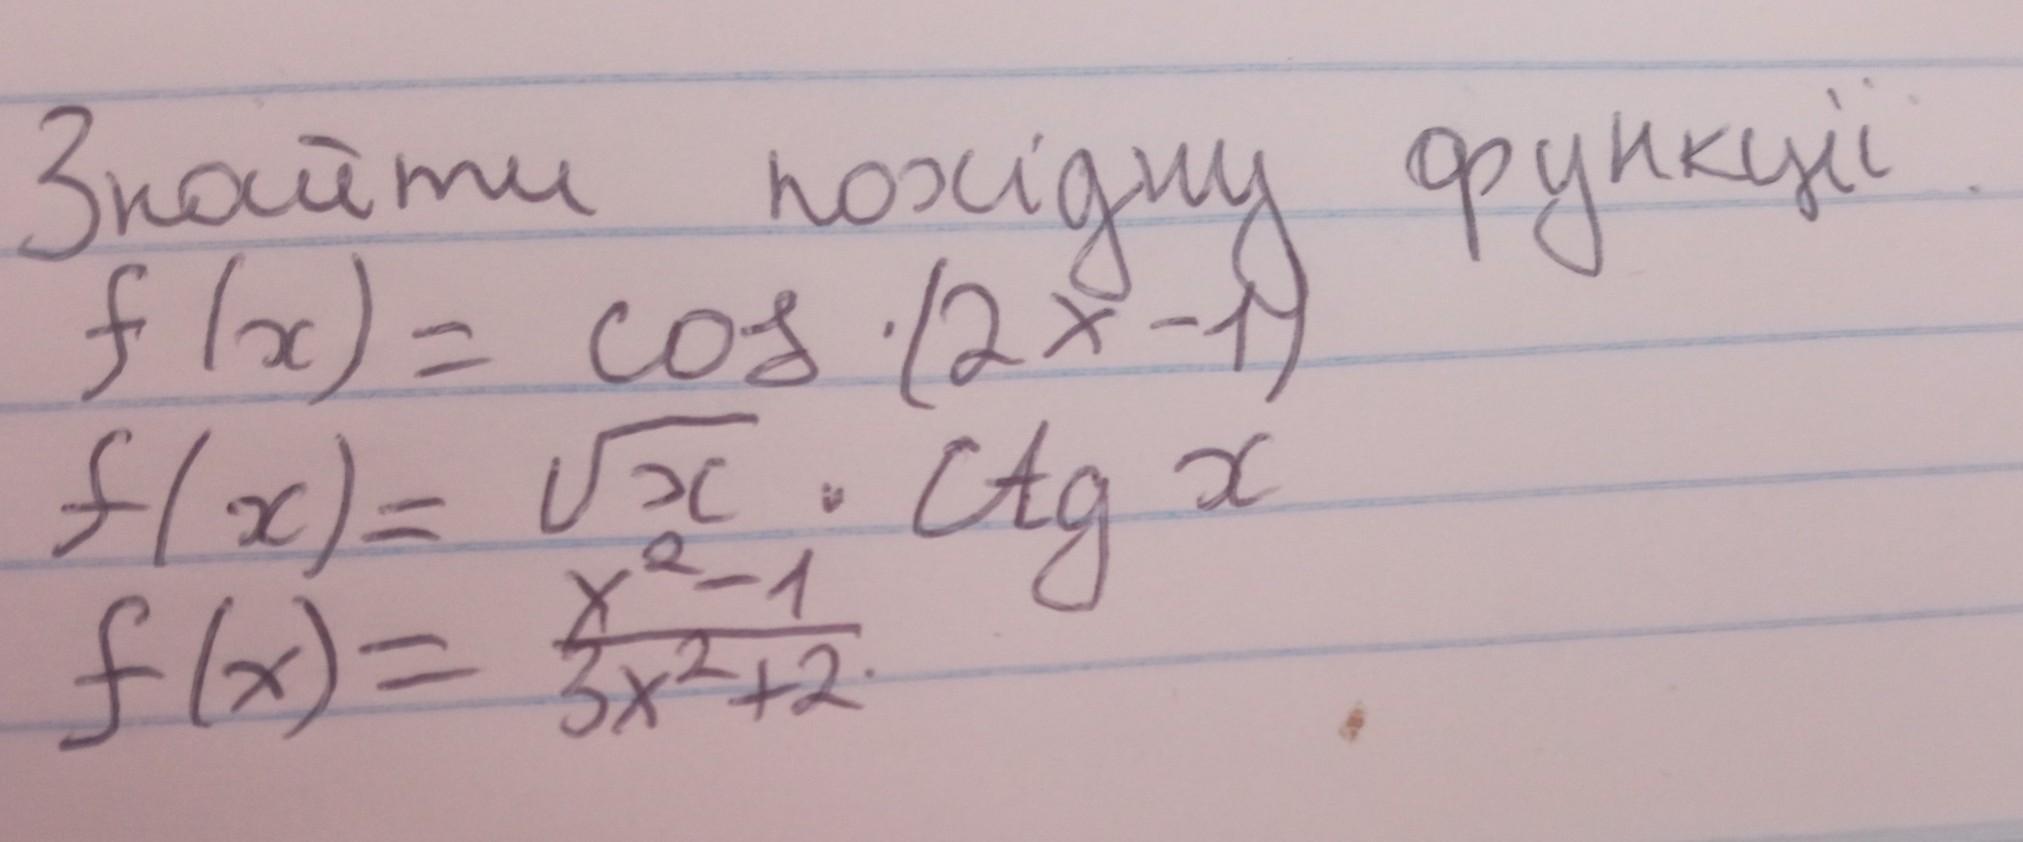 Знайти похідну функції.
f(x) = cos ·(2x-1)
f(x) = √x · ctg x
f(x) = (x²-1)/(3x²+2)